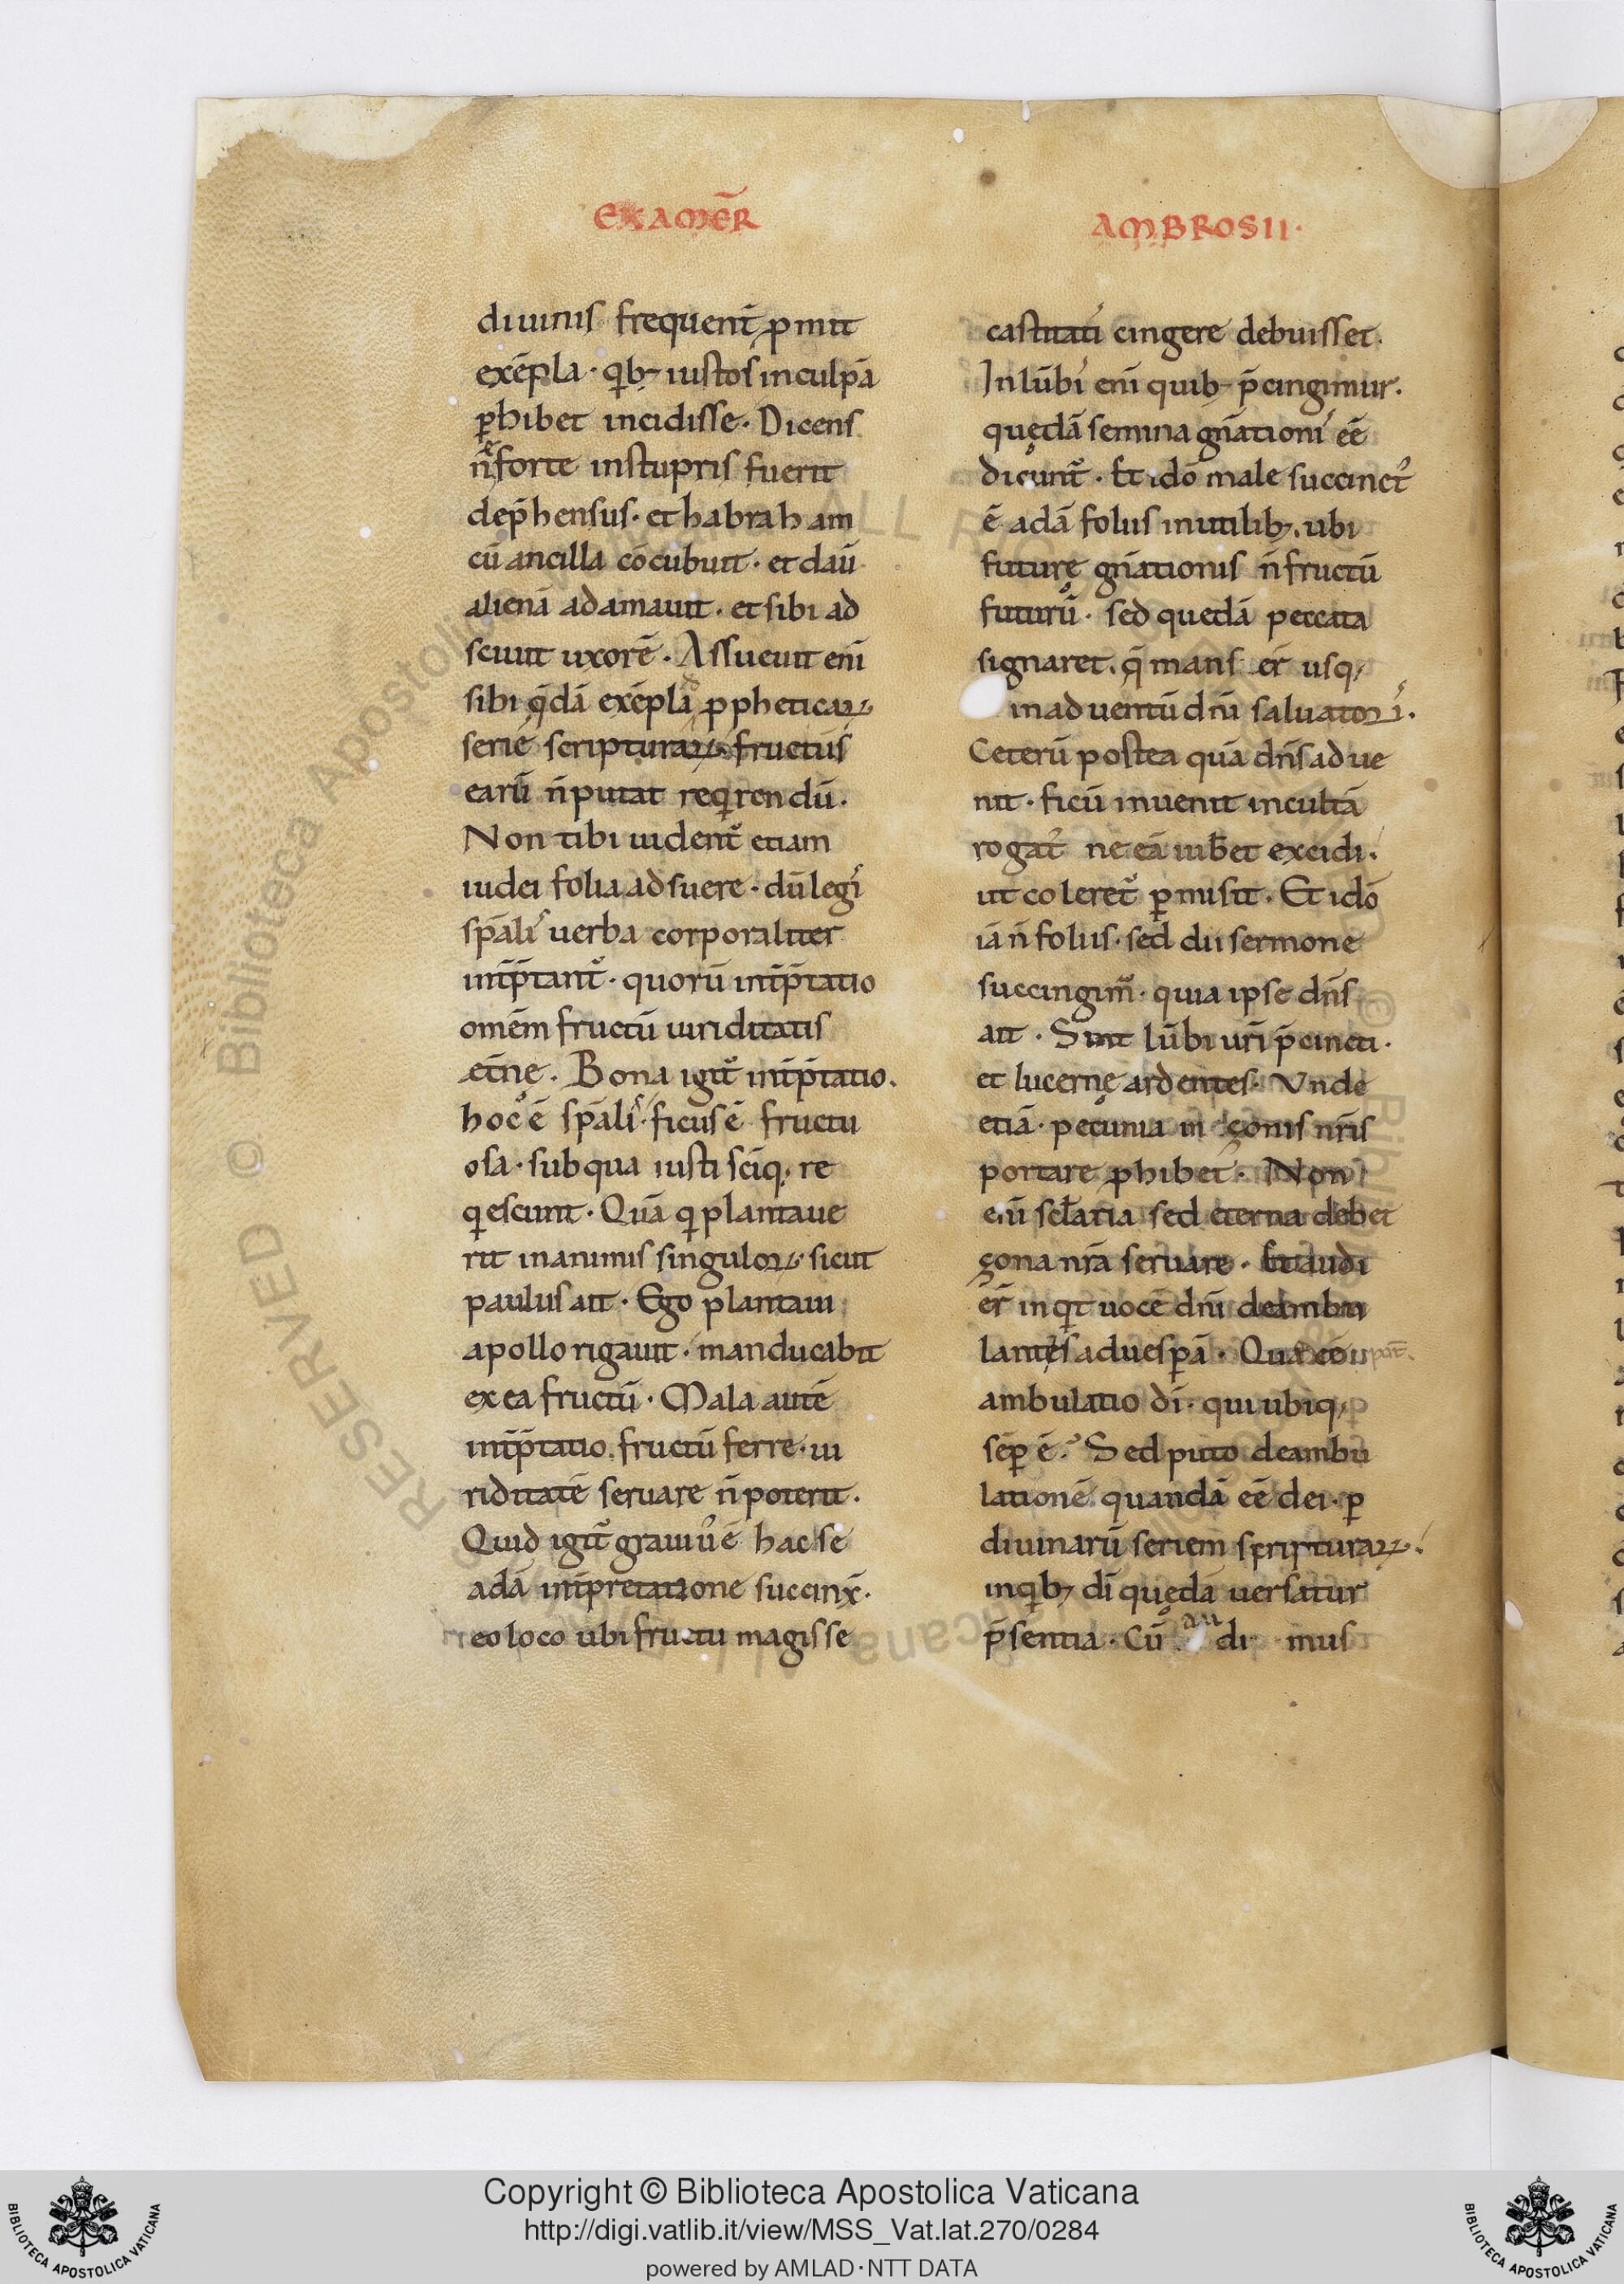 EXAMER̄
diuinis frequent̄ ꝓmit
exēpla · qib; iustos in culpā
ꝑhibet incidisse · Dicens
n̄ forte in stupris fuerit
dep̄hensus · et habraham
cū ancilla cōcubuit · et dauī
alienā adamauit · et sibi ad
sciuit uxorē · Assueuit enī
sibi qͥdā exēpla ꝓpheticaꝝ
serie scripturaꝝ fructus
earū n̄ putat reqͥrendū ·
Non tibi uident᷑ etiam
iudei folia adsuere · dū legi
sp̄ali uerba corporaliter
int̄p̄tant᷑ · quorū int̄p̄tatio
omēm fructū uiriditatis
et̄ne . Bona igit᷑ int̄p̄tatio .
hoc ē sp̄ali · ficus ē fructu
osa · sub qua iusti sc̄iq; re
qͥescunt · Quā qͥ plantaue
rit in animis singuloꝝ sicut
paulus ait · Ego plantaui
apollo rigauit · manducabit
ex ea fructū · Mala autē
int̄p̄tatio . fructū ferre · ui
riditatē seruare n̄ poterit .
Quid igit᷑ grauiꝰ ē hac se
adā int̄pretatione succinx̄ ·
eo loco ubi fructu magis se
AMBROSII ·
castitati cingere debuisset .
In lūbi enī quib; p̄cingimur .
quędā semina gn̄ationi eē
dicunt᷑ . Et idō male succinctꝰ
ē adā foliis inutilib; . ubi
futurę gn̄ationis n̄ fructū
futurū · sed quedā peccata
signaret . q̄ mans er̄ usq;
in aduentū dn̄i saluatori .
Ceterū postea quā dn̄s adue
nit · ficū inuenit incultā
rogatꝰ ne eā iub̄et excidi .
ut coleret᷑ ꝑmisit . Et idō
iā n̄ foliis · sed dīi sermone
succingim᷑ · quia ipse dn̄s
ait . Sint lūbi ur̄i p̄cincti .
et lucernę ardentes . Vnde
etiā · pecunia in çonis nr̄is
portare ꝓhibet . Non
enī sct̄aria sed eterna debet
çona nr̄a seruare . Et audi
er̄ inqͥt uocē dn̄i deambu
lantes ad uesꝑā .
ambulatio dī · qui ubiq;
sēꝑ ē ? Sed puto deambu
lationē quandā eē dei · ꝑ
diuinarū seriem scripturaꝝ .
in qͥb; dī quedā uersatur
p̄sentia . Cū audi mus
Copyright © Biblioteca Apostolica Vaticana
http://digi.vatlib.it/view/MSS_Vat.lat.270/0284
powered by AMLAD · NTT DATA